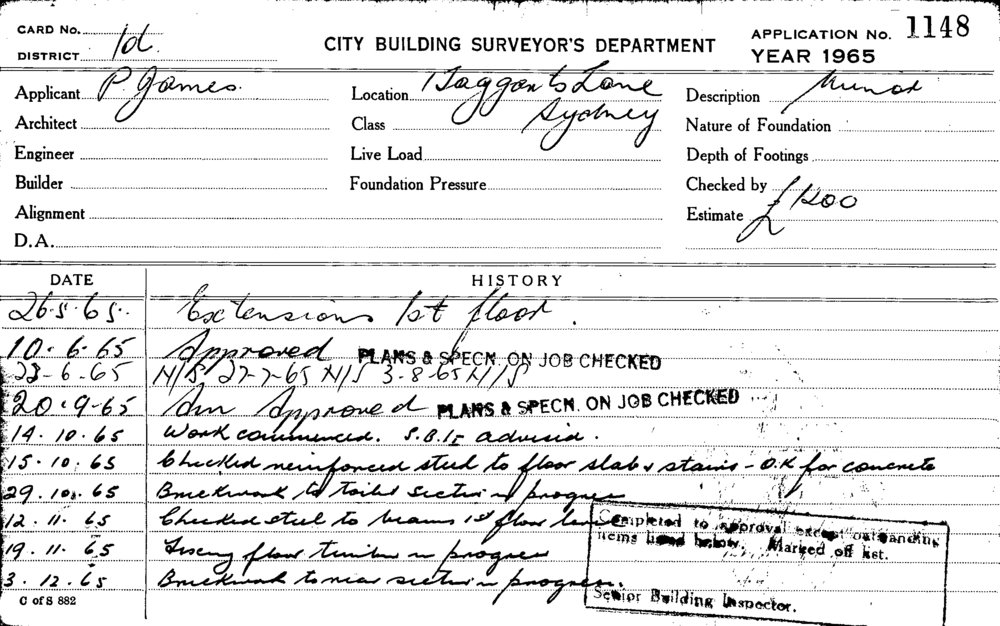 CARD No.
DISTRICT 1d.
CITY BUILDING SURVEYOR'S DEPARTMENT
APPLICATION No. 1148
YEAR 1965
Applicant P. James.
Location Taggarts Lane
Sydney
Description Minor
Architect
Class
Nature of Foundation
Engineer
Live Load
Depth of Footings
Builder
Foundation Pressure
Checked by
Alignment
Estimate £1200
D.A.
DATE HISTORY
26.5.65. Extensions 1st floor.
10.6.65 Approved PLANS & SPECN. ON JOB CHECKED
23-6-65 N/S 27-7-65 N/S 3-8-65 N/S
20.9-65 Am Approved PLANS & SPECN. ON JOB CHECKED
14.10.65 Work commenced. advised.
15.10.65 Checked reinforced steel to floor slab & stairs - O.K for concrete
29.10.65 Brickwork to toilet section in progress
12.11.65 Checked steel to beams 1st floor
19.11.65 floor timber in progress
3.12.65 Brickwork to rear section in progress.
Completed to approval except outstanding
items listed below. Marked off list.
Senior Building Inspector.
C of S 882